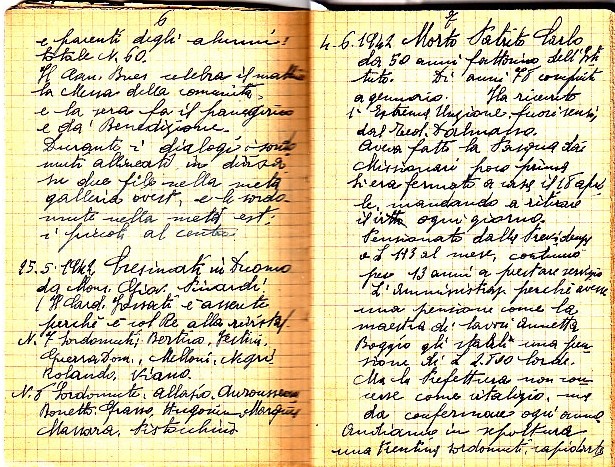 6
e parenti degli alunni!
totale N. 60.
Il Can. Bues celebra il
la Messa della comunità,
e la sera fa il panegirico
e dà Benedizione.
Durante i dialoghi i sordo
muti allineati in divisa
su due file nella metà
galleria ovest, e le sordo-
mute nella metà est;
i piccoli al centro
25.5.1942. Cresimati in Duomo
da Mons. Giov. Pinardi!
(Il Card. Fossati è assente
perché è col Re alla rivista)
N. 7 Sordomuti, Bertino, Festini,
Guerra Dom., Melloni, Negri
Rolando, Viano.
N. 8 Sordomute, Allasio,
Bonetti, Grasso, Hugonin
Massara, Pistochino
7
4.6.1942 Morto Patrito Carlo
da 50 anni fattorino dell'Isti
tuto. Di anni 78 compiuti
a gennaio. Ha ricevuto
l'Estrema Unzione, fuori sensi,
dal Teol. Dalmasso.
Aveva fatto la Pasqua dai
Missionari poco prima
Si era fermato a casa il 18 apri
le, mandando a ritirare
il vitto ogni giorno.
Pensionato dalla Previdenza
a L. 143 al mese, continuò
per 13 anni a prestare servizio
L'Amministraz. perché avesse
una pensione come la
maestra di lavori Annetta
Boggio gli stabilì una pen
sione di L 2.800 lorde.
Ma la Prefettura non con
cesse come vitalizio, ma
da confermare ogni anno
Andiamo in sepoltura
una trentina sordomuti,